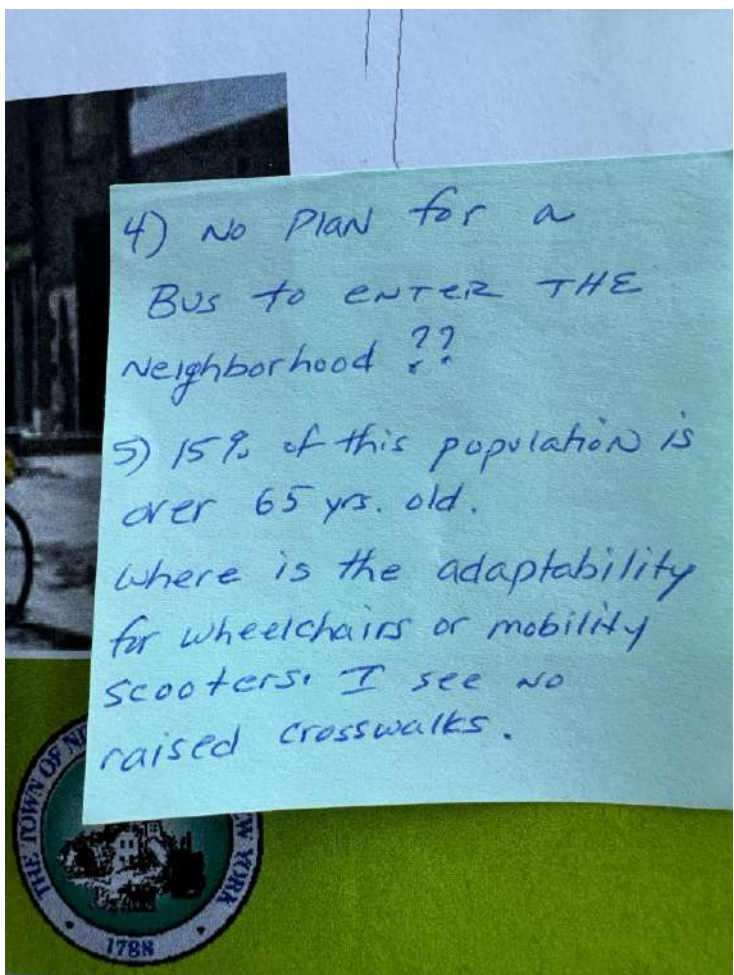 4) NO PLAN for a
BUS to ENTER THE
Neighborhood ??
5) 15% of this population is
over 65 yrs. old.
where is the adaptability
for wheelchairs or mobility
scooters. I see NO
raised crosswalks.
THE TOWN OF
YORK
1788